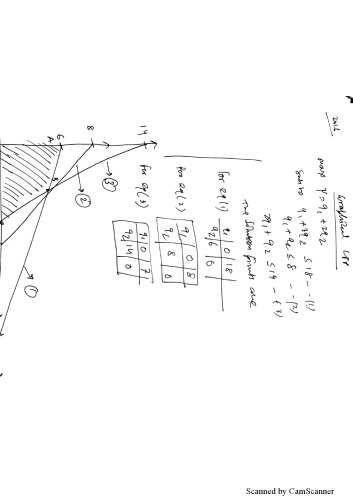 Graphical LPP
max Y = q1 + 2q2
q1 + 3q2 ≤ 18 -- (1)
q1 + q2 ≤ 8 -- (2)
2q1 + q2 ≤ 14 -- (3)
The solution points are
for eq (1)
q1 0 18
q2 6 0
for eq (2)
q1 0 8
q2 8 0
for eq (3)
q1 0 7
q2 14 0
14
8
6
A
B
(3)
(2)
(1)
Scanned by CamScanner